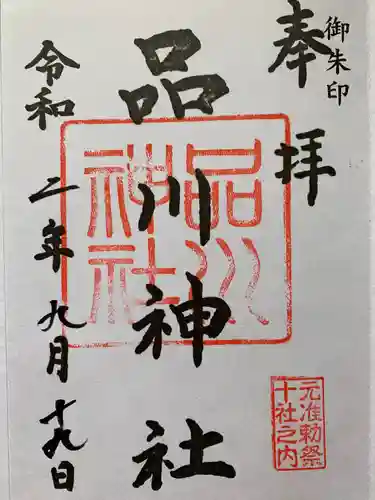 御朱印
奉拝
品川神社
令和二年九月十九日
品川神社
元准勅祭
十社之内